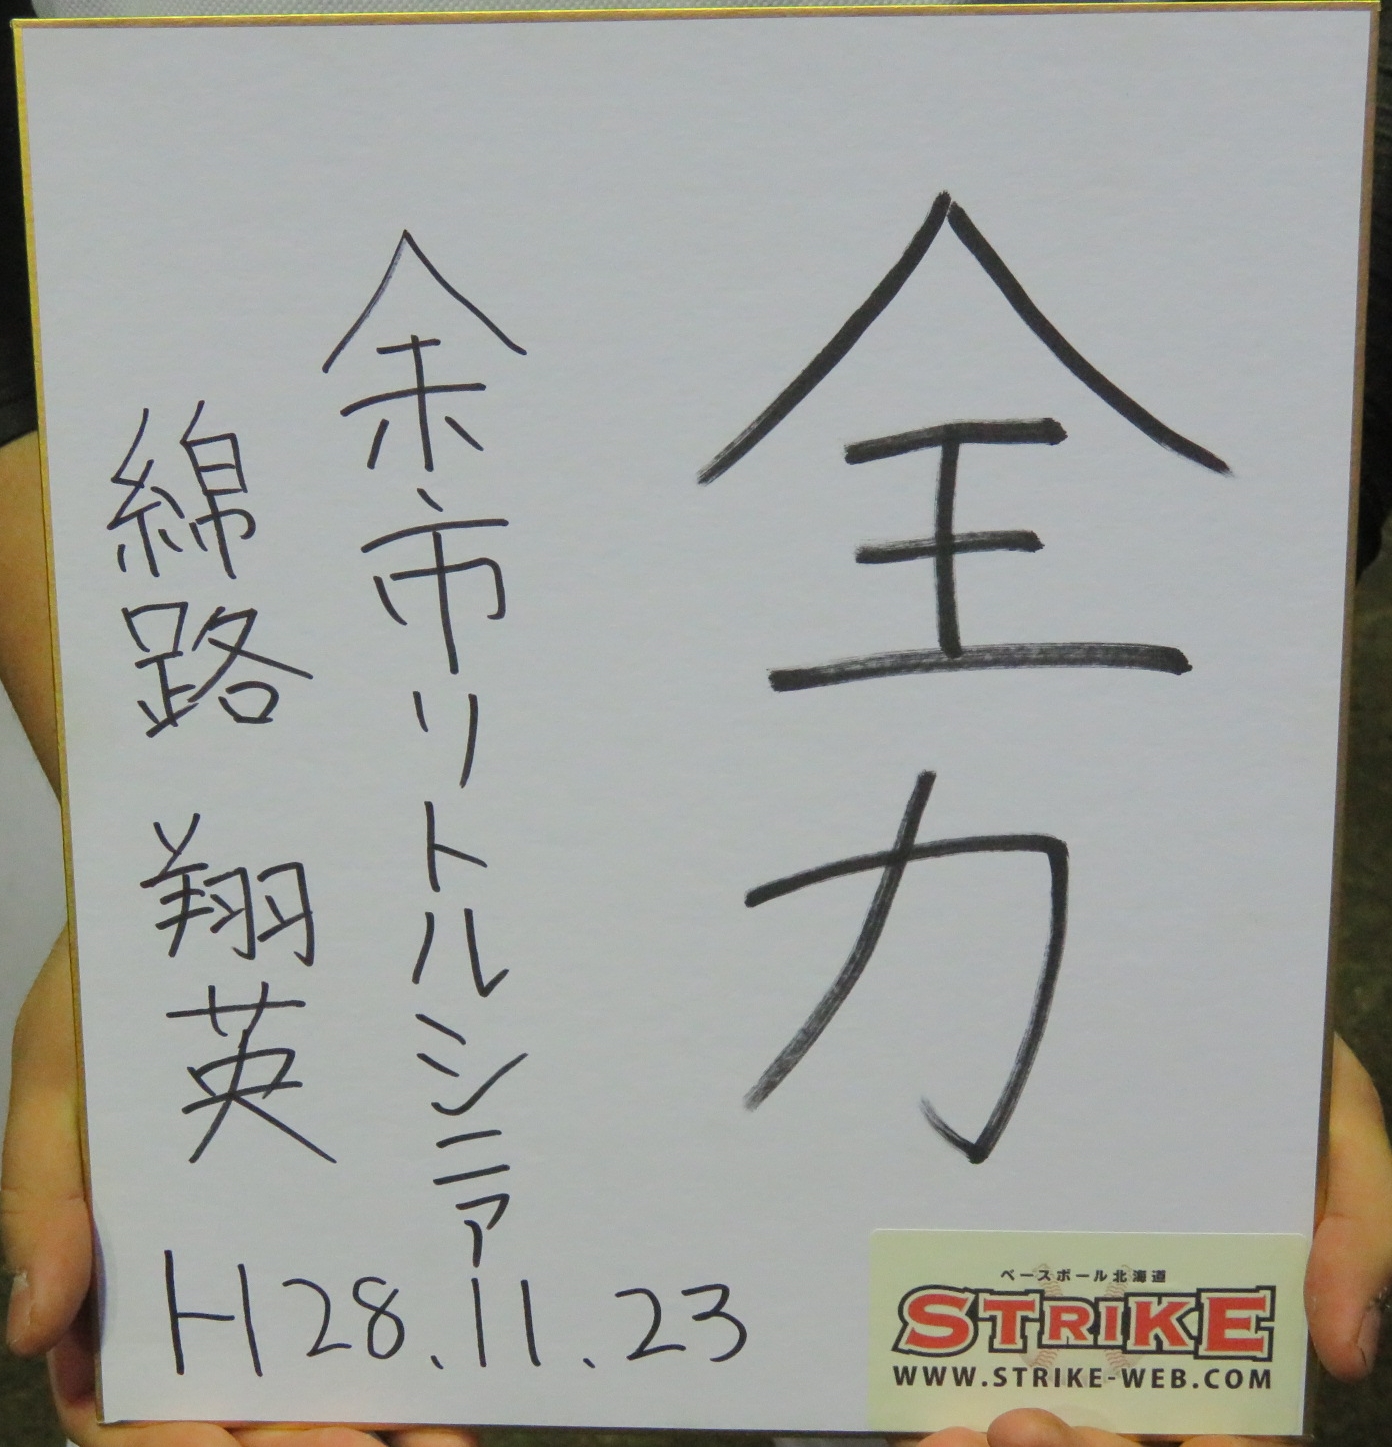 全力
余市リトルシニア
綿路 翔英
H28.11.23
ベースボール北海道
STRIKE
WWW.STRIKE-WEB.COM